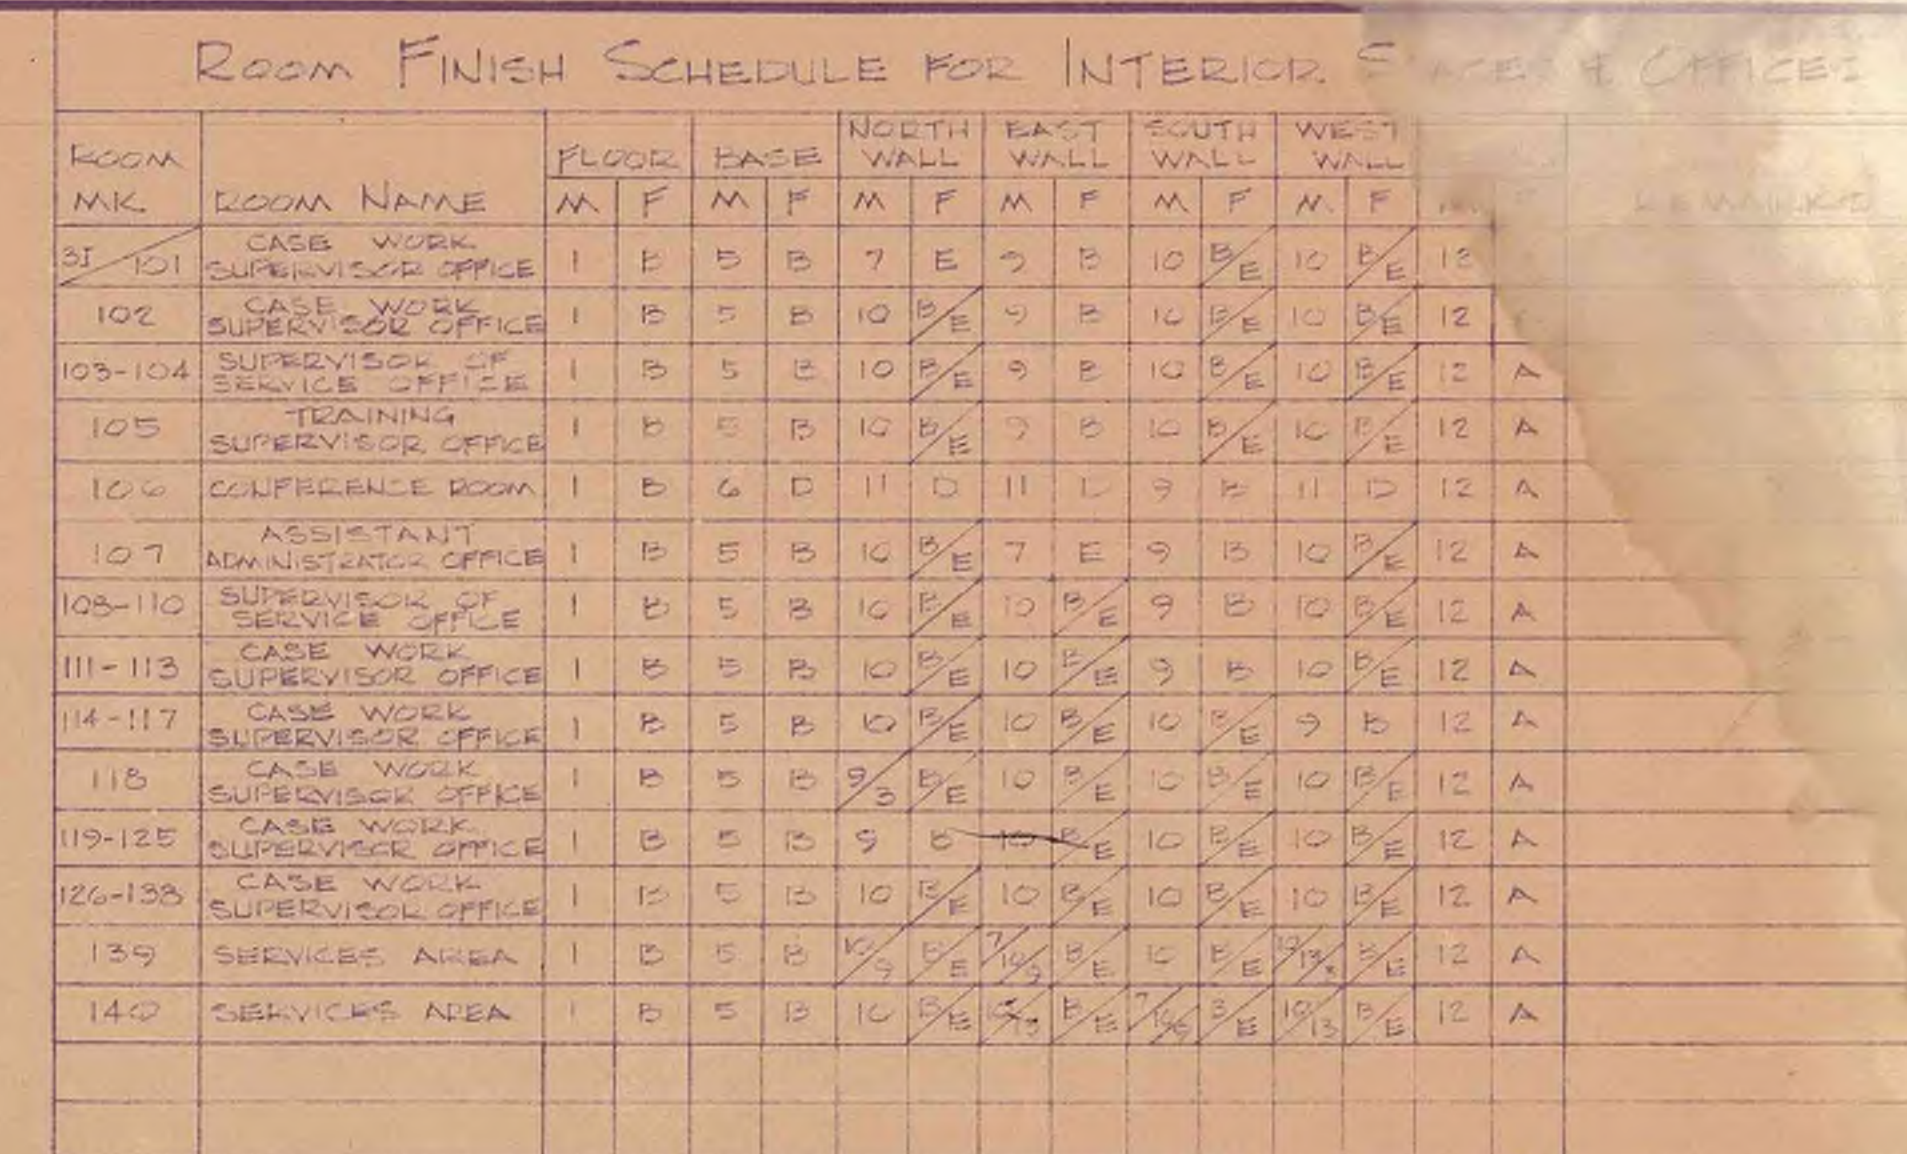 ROOM FINISH SCHEDULE FOR INTERIOR SPACES & OFFICES
ROOM MK. ROOM NAME FLOOR BASE NORTH WALL EAST WALL SOUTH WALL WEST WALL REMARKS
M F M F M F M F M F M F
3I/101 CASE WORK SUPERVISOR OFFICE 1 B 5 B 7 E 9 B 10 B/E 10 B/E
102 CASE WORK SUPERVISOR OFFICE 1 B 5 B 10 B/E 9 B 10 B/E 10 B/E 12
103-104 SUPERVISOR OF SERVICE OFFICE 1 B 5 B 10 B/E 9 B 10 B/E 10 B/E 12 A
105 TRAINING SUPERVISOR OFFICE 1 B 5 B 10 B/E 9 B 10 B/E 10 B/E 12 A
106 CONFERENCE ROOM 1 B 6 D 11 D 11 D 9 B 11 D 12 A
107 ASSISTANT ADMINISTRATOR OFFICE 1 B 5 B 10 B/E 7 E 9 B 10 B/E 12 A
108-110 SUPERVISOR OF SERVICE OFFICE 1 B 5 B 10 B/E 10 B/E 9 B 10 B/E 12 A
111-113 CASE WORK SUPERVISOR OFFICE 1 B 5 B 10 B/E 10 B/E 9 B 10 B/E 12 A
114-117 CASE WORK SUPERVISOR OFFICE 1 B 5 B 10 B/E 10 B/E 10 B/E 9 B 12 A
118 CASE WORK SUPERVISOR OFFICE 1 B 5 B 9/3 B/E 10 B/E 10 B/E 10 B/E 12 A
119-125 CASE WORK SUPERVISOR OFFICE 1 B 5 B 9 B 10 B/E 10 B/E 10 B/E 12 A
126-138 CASE WORK SUPERVISOR OFFICE 1 B 5 B 10 B/E 10 B/E 10 B/E 10 B/E 12 A
139 SERVICES AREA 1 B 5 B 10/9 B/E 7/10/9 B/E 10 B/E B/E 12 A
140 SERVICES AREA 1 B 5 B 10 B/E B/E B/E 10/13 B/E 12 A